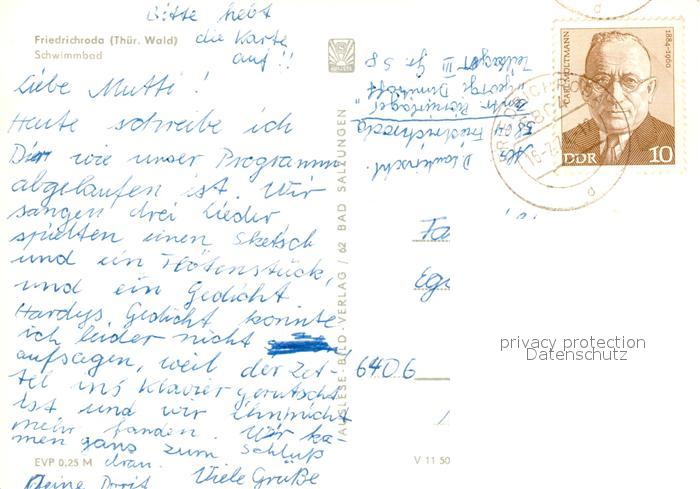 Bitte hebt
die Karte
auf!!
Friedrichroda (Thür. Wald)
Schwimmbad
Liebe Mutti!
Heute schreibe ich
Dir wie unser Programm
abgelaufen ist. Wir
sangen drei Lieder
spielten einen Sketsch
und ein Flötenstück,
und ein Gedicht
Hardys Gedicht konnte
ich leider nicht
aufsagen, weil der Zet-
tel ins Klavier gerutscht
ist und wir ihn nicht
mehr fanden. Wir ka
men ganz zum Schluß
dran. Viele Grüße
Deine Dorit
EVP 0,25 M
AUSLESE-BILD-VERLAG / 62 BAD SALZUNGEN
V 11 50
5804 Friedrichroda
Zentr. Pionierlager
"Georgi Dimitroff"
Teillager III Gr. 58
CARL MOLTMANN
1884-1960
DDR 10
Fa
Ege
6406
privacy protection
Datenschutz